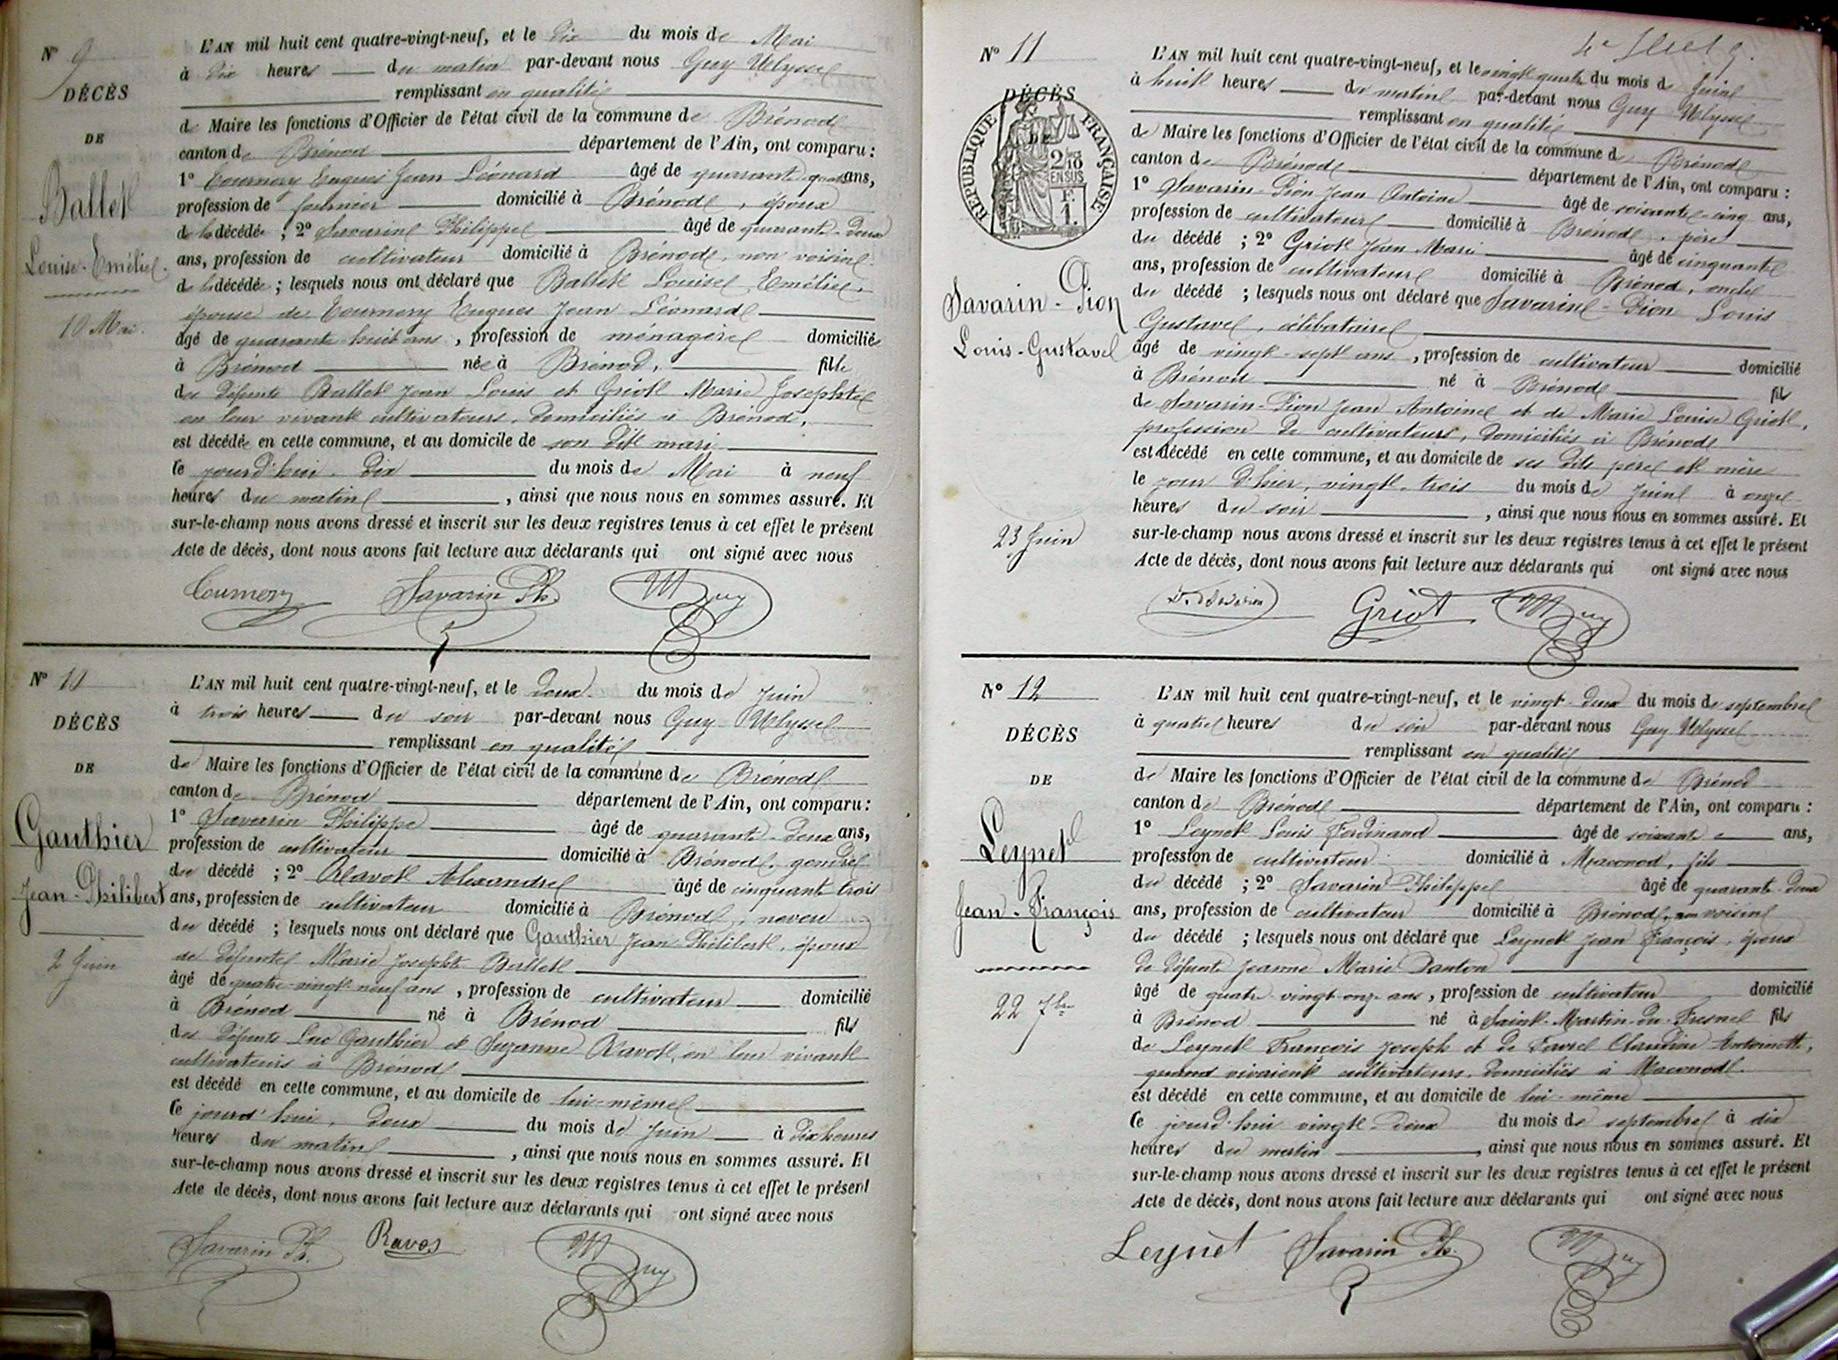 N° 9
DÉCÈS
DE
Ballet
Louise-Emélie.
10 Mai.
L'AN mil huit cent quatre-vingt-neuf, et le dix du mois de Mai
à dix heures du matin par-devant nous Guy Ulysse
remplissant en qualité
de Maire les fonctions d'Officier de l'état civil de la commune de Brénod
canton de Brénod département de l'Ain, ont comparu :
1° Tournery Eugues Jean Léonard âgé de quarante-quatre ans,
profession de domicilié à Brénod, époux
de la décédée ; 2° Savarin Philippe âgé de quarante-deux
ans, profession de cultivateur domicilié à Brénod, non voisin
de la décédée ; lesquels nous ont déclaré que Ballet Louise Emélie,
épouse de Tournery Eugues Jean Léonard
âgé de quarante huit ans, profession de ménagère domiciliée
à Brénod née à Brénod, fille
des défunts Ballet Jean Louis et Griot Marie Josephte
en leur vivant cultivateurs, domiciliés à Brénod,
est décédée en cette commune, et au domicile de son dit mari
Ce jourd'hui, dix du mois de Mai à neuf
heures du matin, ainsi que nous nous en sommes assuré. Et
sur-le-champ nous avons dressé et inscrit sur les deux registres tenus à cet effet le présent
Acte de décès, dont nous avons fait lecture aux déclarants qui ont signé avec nous
Savarin Ph. Guy
N° 10
DÉCÈS
DE
Gauthier
Jean-Philibert
2 Juin
L'AN mil huit cent quatre-vingt-neuf, et le deux du mois de Juin
à trois heures du soir par-devant nous Guy Ulysse
remplissant en qualité
de Maire les fonctions d'Officier de l'état civil de la commune de Brénod
canton de Brénod département de l'Ain, ont comparu :
1° Savarin Philippe âgé de quarante-deux ans,
profession de cultivateur domicilié à Brénod, gendre
du décédé ; 2° Ravot Alexandre âgé de cinquante trois
ans, profession de cultivateur domicilié à Brénod, neveu
du décédé ; lesquels nous ont déclaré que Gauthier Jean Philibert, époux
de défunte Marie Josephte Ballet
âgé de quatre-vingt neuf ans, profession de cultivateur domicilié
à Brénod né à Brénod fils
des défunts Luc Gauthier et Suzanne Ravot, en leur vivant
cultivateurs à Brénod
est décédé en cette commune, et au domicile de lui-même
Ce jourd'hui, deux du mois de Juin à dix heures
heures du matin, ainsi que nous nous en sommes assuré. Et
sur-le-champ nous avons dressé et inscrit sur les deux registres tenus à cet effet le présent
Acte de décès, dont nous avons fait lecture aux déclarants qui ont signé avec nous
Savarin Ph. Ravos Guy
N° 11
DÉCÈS
DE
RÉPUBLIQUE FRANÇAISE
2/10 EN SUS
F. 1.
Savarin-Pion
Louis-Gustave
23 Juin
L'AN mil huit cent quatre-vingt-neuf, et le vingt quatre du mois de Juin
à huit heures du matin par-devant nous Guy Ulysse
remplissant en qualité
de Maire les fonctions d'Officier de l'état civil de la commune de Brénod
canton de Brénod département de l'Ain, ont comparu :
1° Savarin-Pion Jean Antoine âgé de soixante-cinq ans,
profession de cultivateur domicilié à Brénod, père
du décédé ; 2° Griot Jean Marie âgé de cinquante
ans, profession de cultivateur domicilié à Brénod, oncle
du décédé ; lesquels nous ont déclaré que Savarin-Pion Louis
Gustave, célibataire
âgé de vingt-sept ans, profession de cultivateur domicilié
à Brénod né à Brénod fils
de Savarin-Pion Jean Antoine et de Marie Louise Griot,
profession de cultivateurs, domiciliés à Brénod
est décédé en cette commune, et au domicile de ses dits père et mère
le jour d'hier, vingt-trois du mois de Juin à onze
heures du soir, ainsi que nous nous en sommes assuré. Et
sur-le-champ nous avons dressé et inscrit sur les deux registres tenus à cet effet le présent
Acte de décès, dont nous avons fait lecture aux déclarants qui ont signé avec nous
Griot Guy
N° 12
DÉCÈS
DE
Leynet
Jean-François
22 7bre
L'AN mil huit cent quatre-vingt-neuf, et le vingt-deux du mois de septembre
à quatre heures du soir par-devant nous Guy Ulysse
remplissant en qualité
de Maire les fonctions d'Officier de l'état civil de la commune de Brénod
canton de Brénod département de l'Ain, ont comparu :
1° Leynet Louis Ferdinand âgé de soixante ans,
profession de cultivateur domicilié à Maconod, fils
du décédé ; 2° Savarin Philippe âgé de quarante-deux
ans, profession de cultivateur domicilié à Brénod, non voisin
du décédé ; lesquels nous ont déclaré que Leynet Jean François, époux
de défunte Jeanne Marie Danton
âgé de quatre-vingt-onze ans, profession de cultivateur domicilié
à Brénod né à Saint-Martin-du-Fresne fils
de Leynet François Joseph et de Favre Claudine Antoinette,
quand vivaient cultivateurs, domiciliés à Maconod.
est décédé en cette commune, et au domicile de lui-même
Ce jourd'hui vingt deux du mois de septembre à dix
heures du matin, ainsi que nous nous en sommes assuré. Et
sur-le-champ nous avons dressé et inscrit sur les deux registres tenus à cet effet le présent
Acte de décès, dont nous avons fait lecture aux déclarants qui ont signé avec nous
Leynet Savarin Ph. Guy